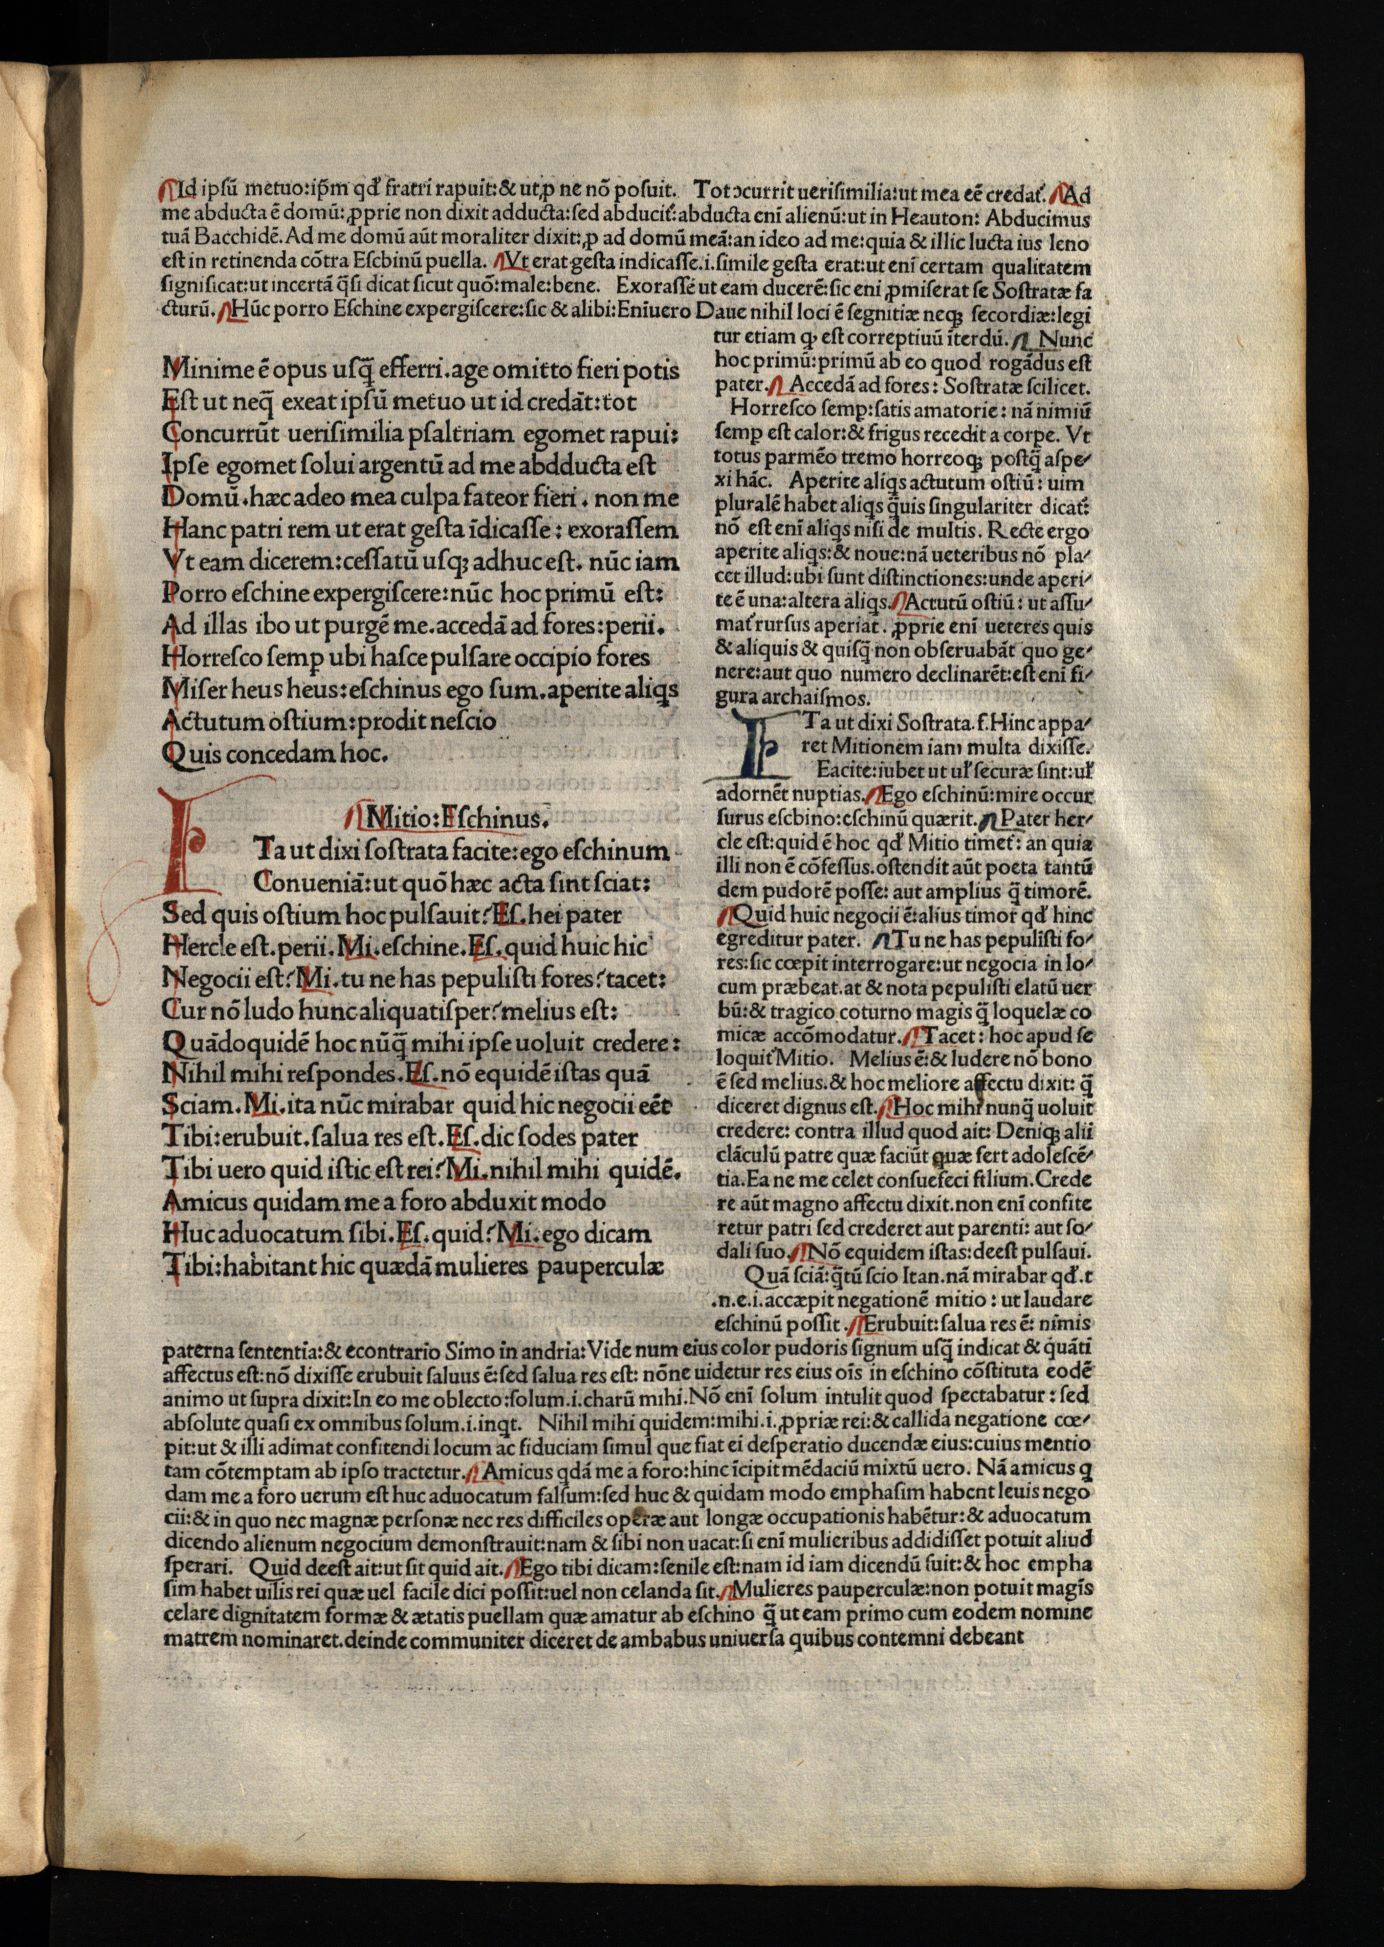 Id ipsū metuo:ip̄m qd́ fratri rapuit:& ut ꝓ ne nō posuit. Tot ↄcurrit uerisimilia:ut mea eē credat́. Ad
me abducta ē domū: ꝓprie non dixit adducta:sed abducit́:abducta enī alienū:ut in Heauton: Abducimus
tuā Bacchidē. Ad me domū aūt moraliter dixit: ꝓ ad domū meā:an ideo ad me:quia & illic lucta ius leno
est in retinenda cōtra Escbinū puella. Vt erat gesta indicasse.i.simile gesta erat:ut enī certam qualitatem
significat:ut incertā q̄si dicat sicut quō:male:bene. Exorassē ut eam ducerē:sic eni ꝓmiserat se Sostratæ fa
cturū. Hūc porro Eschine expergiscere:sic & alibi:Enīuero Daue nihil loci ē segnitiæ neqꝫ secordiæ:legi
tur etiam ꝙ est correptiuū īterdū. Nunc
hoc primū:primū ab eo quod rogādus est
pater. Accedā ad fores: Sostratæ scilicet.
Horresco semp̱:satis amatorie: nā nimiū
semp̱ est calor:& frigus recedit a corp̱e. Vt
totus parmēo tremo horreoqꝫ postq̄ aspe-
xi hāc. Aperite aliqs actutum ostiū: uim
pluralē habet aliqs q̄uis singulariter dicat́:
nō est enī aliqs nisi de multis. Recte ergo
aperite aliqs:& noue:nā ueteribus nō pla-
cet illud:ubi sunt distinctiones:unde aperi-
te ē una:altera aliqs. Actutū ostiū: ut assu-
mat́ rursus aperiat. ꝓprie enī ueteres quis
& aliquis & quisq̄ non obseruabāt quo ge-
nere:aut quo numero declinarēt:est eni fi-
gura archaismos.
Minime ē opus usq̄ efferri.age omitto fieri potis
Est ut neq̄ exeat ipsū metuo ut id credāt:tot
Concurrūt uerisimilia psaltriam egomet rapui:
Ipse egomet solui argentū ad me abdducta est
Domū.hæc adeo mea culpa fateor fieri. non me
Hanc patri rem ut erat gesta īdicasse: exorassem
Vt eam dicerem:cessatū usqꝫ adhuc est. nūc iam
Porro eschine expergiscere:nūc hoc primū est:
Ad illas ibo ut purgē me.accedā ad fores:perii.
Horresco semp̱ ubi hasce pulsare occipio fores
Miser heus heus:eschinus ego sum.aperite aliqs
Actutum ostium:prodit nescio
Quis concedam hoc.
Mitio:Eschinus.
ITa ut dixi sostrata facite:ego eschinum
Conueniā:ut quō hæc acta sint sciat:
Sed quis ostium hoc pulsauit? Es.hei pater
Hercle est.perii. Mi.eschine. Es.quid huic hic
Negocii est? Mi.tu ne has pepulisti fores? tacet:
Cur nō ludo hunc aliquatisper? melius est:
Quādoquidē hoc nūq̄ mihi ipse uoluit credere:
Nihil mihi respondes. Es.nō equidē istas quā
Sciam. Mi.ita nūc mirabar quid hic negocii eēt
Tibi:erubuit.salua res est. Es.dic sodes pater
Tibi uero quid istic est rei? Mi.nihil mihi quidē.
Amicus quidam me a foro abduxit modo
Huc aduocatum sibi. Es.quid? Mi.ego dicam
Tibi:habitant hic quædā mulieres pauperculæ
ITa ut dixi Sostrata.f.Hinc appa-
ret Mitionem iam multa dixisse.
Eacite:iubet ut uł securæ sint:uł
adornēt nuptias. Ego eschinū:mire occur
surus escbino:eschinū quærit. Pater her-
cle est:quid ē hoc qd́ Mitio timet́: an quia
illi non ē cōfessus.ostendit aūt poeta tantū
dem pudorē posse: aut amplius q̄ timorē.
Quid huic negocii ē:alius timor qd́ hinc
egreditur pater. Tu ne has pepulisti fo-
res:sic cœpit interrogare:ut negocia in lo-
cum præbeat.at & nota pepulisti elatū uer
bū:& tragico coturno magis q̄ loquelæ co
micæ accōmodatur. Tacet: hoc apud se
loquit́ Mitio. Melius ē:& ludere nō bono
ē sed melius.& hoc meliore affectu dixit: q̄
diceret dignus est. Hoc mihi nunq̄ uoluit
credere: contra illud quod ait: Deniqꝫ alii
clāculū patre quæ faciūt quæ fert adolescē-
tia. Ea ne me celet consuefeci filium. Crede
re aūt magno affectu dixit.non enī confite
retur patri sed crederet aut parenti: aut so-
dali suo. Nō equidem istas:deest pulsaui.
Quā sciā:q̄tū scio Itan.nā mirabar qd́.t
.n.e.i.accæpit negationē mitio: ut laudare
eschinū possit. Erubuit:salua res ē: nimis
paterna sententia:& econtrario Simo in andria: Vide num eius color pudoris signum usq̄ indicat & quāti
affectus est:nō dixisse erubuit saluus ē:sed salua res est: nōne uidetur res eius oīs in eschino cōstituta eodē
animo ut supra dixit:In eo me oblecto:solum.i.charū mihi. Nō enī solum intulit quod spectabatur: sed
absolute quasi ex omnibus solum.i.inqt. Nihil mihi quidem:mihi.i.ꝓpriæ rei:& callida negatione cœ-
pit:ut & illi adimat confitendi locum ac fiduciam simul que fiat ei desperatio ducendæ eius:cuius mentio
tam cōtemptam ab ipso tractetur. Amicus qdā me a foro:hinc īcipit mēdaciū mixtū uero. Nā amicus q
dam me a foro uerum est huc aduocatum falsum:sed huc & quidam modo emphasim habent leuis nego
cii:& in quo nec magnæ personæ nec res difficiles operæ aut longæ occupationis habētur:& aduocatum
dicendo alienum negocium demonstrauit:nam & sibi non uacat:si enī mulieribus addidisset potuit aliud
sperari. Quid deest ait:ut sit quid ait. Ego tibi dicam:senile est:nam id iam dicendū fuit:& hoc empha
sim habet uilis rei quæ uel facile dici possit:uel non celanda sit. Mulieres pauperculæ:non potuit magīs
celare dignitatem formæ & ætatis puellam quæ amatur ab eschino q̄ ut eam primo cum eodem nomine
matrem nominaret.deinde communiter diceret de ambabus uniuersa quibus contemni debeant